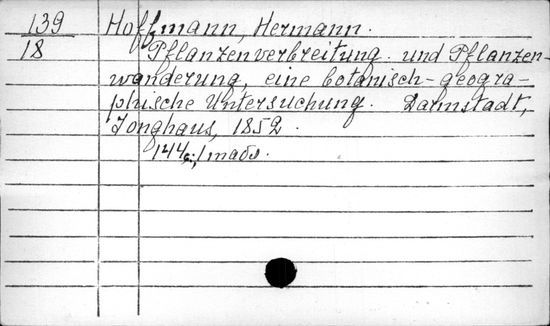 139 Hoffmann, Hermann.
18 Pflanzenverbreitung und Pflanzen-
wanderung, eine botanisch-geogra-
phische Untersuchung. Darmstadt,
Jonghaus, 1852.
144 c., 1